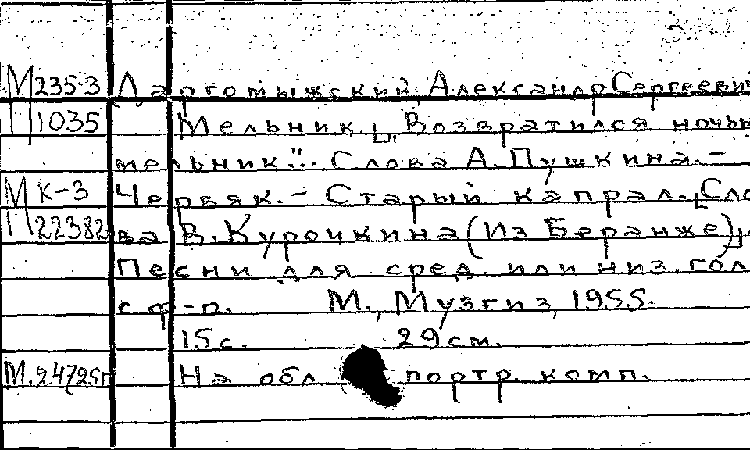 М 235-3 Даргомыжский, Александр Сергеевич
М 1035 Мельник. „Возвратился ночью
мельник..." Слова А. Пушкина. –
М К-3 Червяк. – Старый капрал. [Сло-
М 22382 ва В. Курочкина (Из Беранже)].
Песни для сред. или низ. гол.
с ф-п. М., Музгиз, 1955.
15 с. 29 см.
М.24725п На обл. портр. комп.